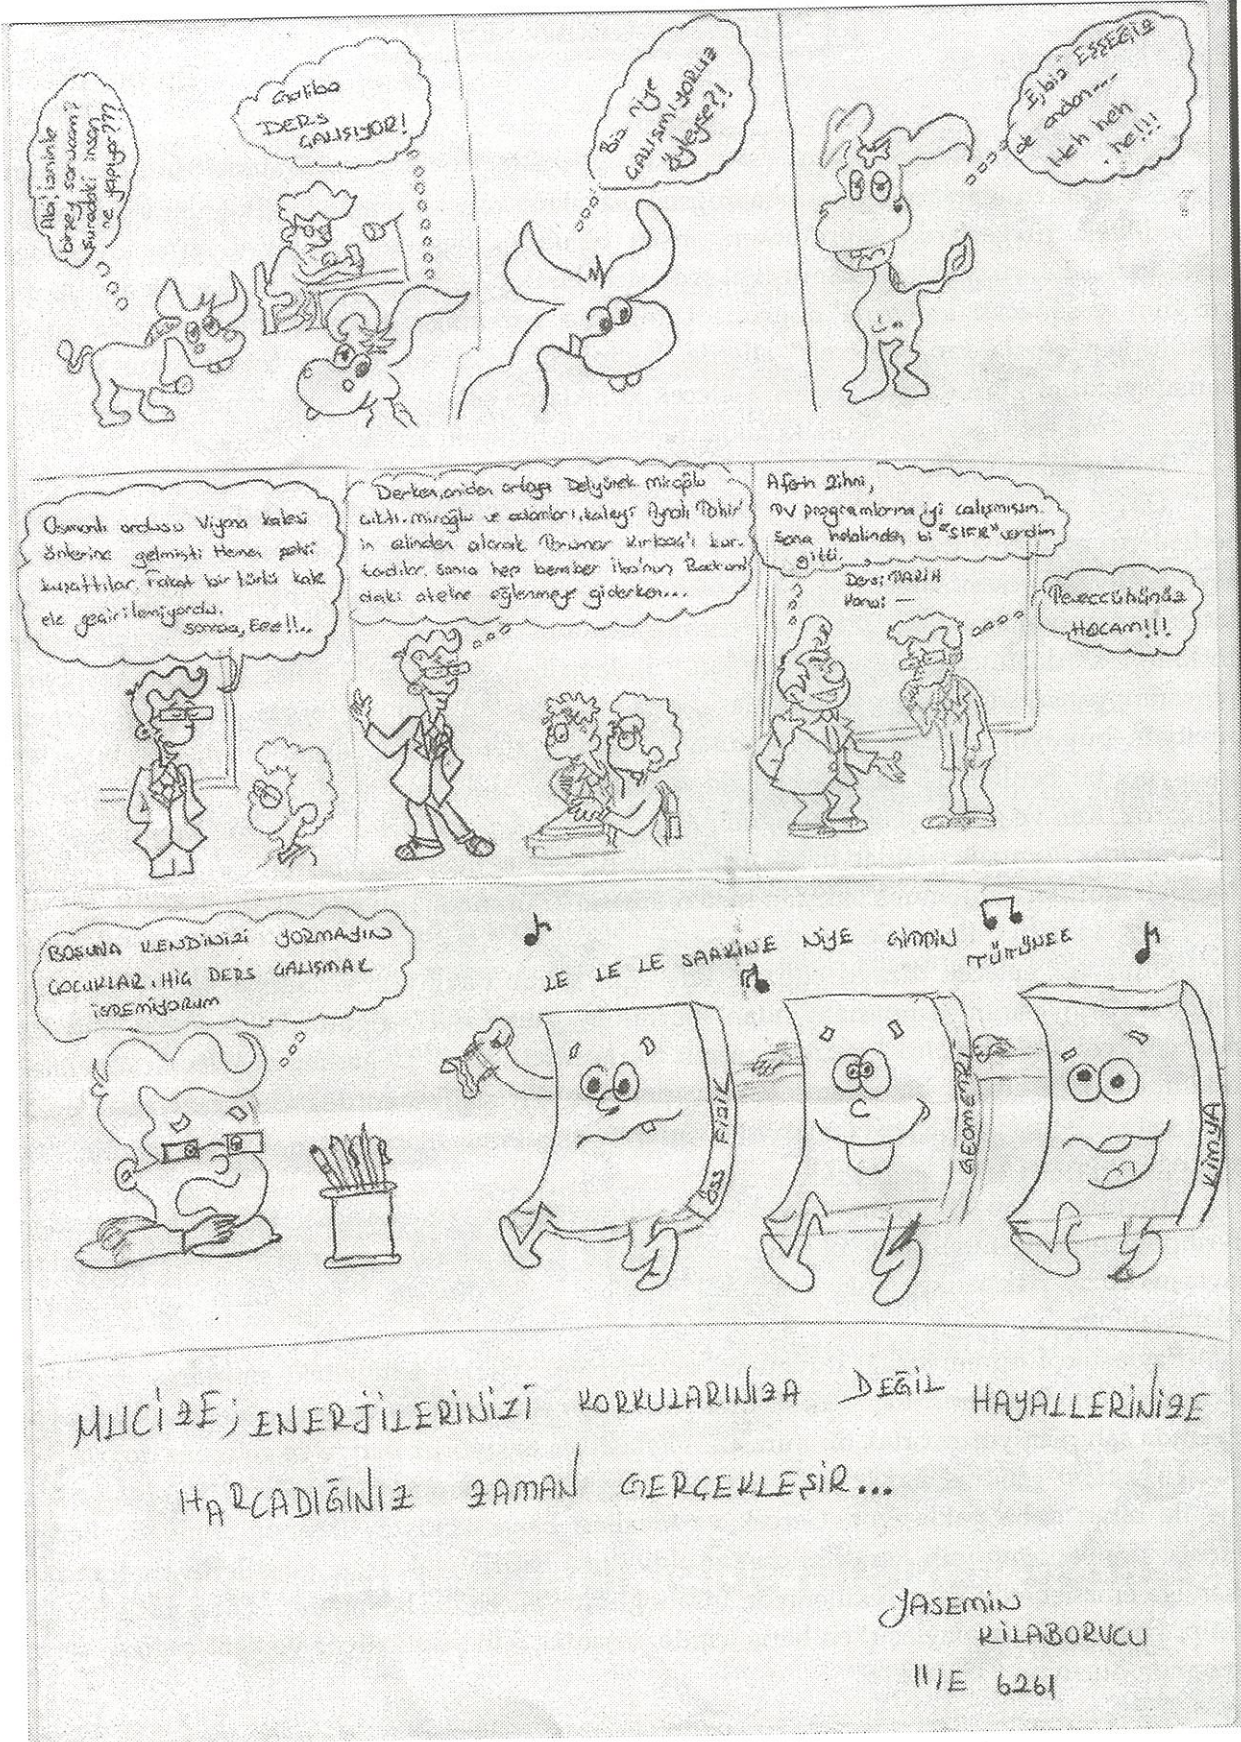 Abi, izninle
birşey sorucam?
Şuradaki insan
ne yapıyor???
Galiba
DERS
ÇALIŞIYOR!
Biz niye
ÇALIŞMIYORUZ
Öyleyse?!
E, biz EŞŞEĞİZ
de ondan....
Heh heh
he!!!
Osmanlı ordusu Viyana kalesi
önlerine gelmişti. Hemen
kuşattılar. Fakat bir türlü kale
ele geçirilemiyordu.
Sonraa, Eee!!..
Derken, aniden ortaya Delyürek Miroğlu
çıktı. Miroğlu ve adamları, kaleyi Aynalı Tahir'
in elinden alarak Kırbaç'ı kur-
tardılar. Sonra hep beraber İbo'nun
daki oteline eğlenmeye giderken...
Aferin Zihni,
TV programlarına iyi çalışmışsın.
Sana helalinden bi "SIFIR" verdim
gitti.
Ders: TARİH
Konu: —
Teveccühünüz
HOCAM!!!
BOŞUNA KENDİNİZİ YORMAYIN
ÇOCUKLAR, HİÇ DERS ÇALIŞMAK
İSTEMİYORUM
LE LE LE SAAKİNE NİYE GİTTİN TÜTÜNEE
ÖSS FİZİK
GEOMETRİ
KİMYA
MUCİZE; ENERJİLERİNİZİ KORKULARINIZA DEĞİL HAYALLERİNİZE
HARCADIĞINIZ ZAMAN GERÇEKLEŞİR...
YASEMİN
KİLABORUCU
11/E 6261